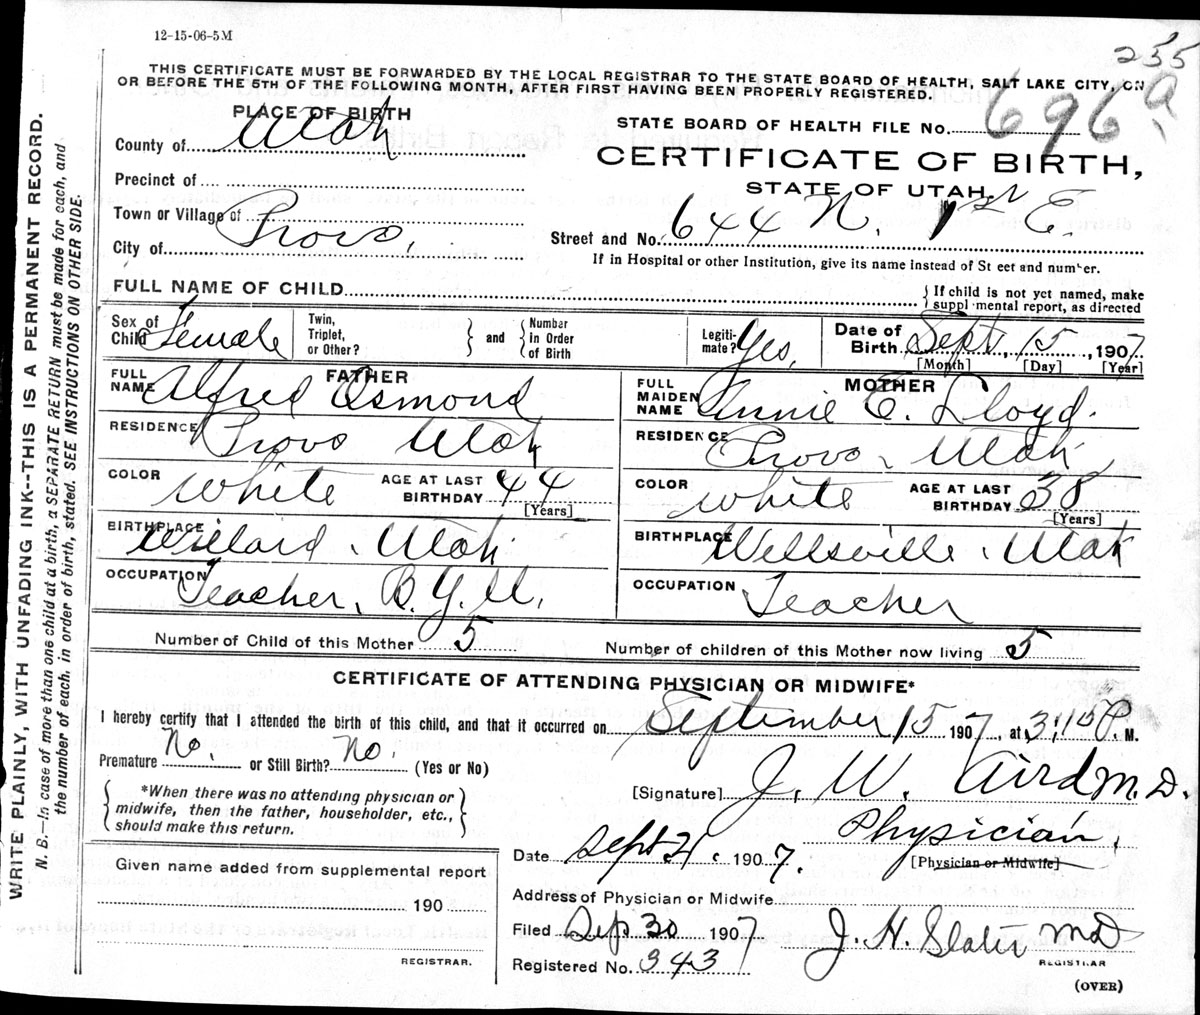 12-15-06-5M
255
THIS CERTIFICATE MUST BE FORWARDED BY THE LOCAL REGISTRAR TO THE STATE BOARD OF HEALTH, SALT LAKE CITY, ON
OR BEFORE THE 5TH OF THE FOLLOWING MONTH, AFTER FIRST HAVING BEEN PROPERLY REGISTERED.
PLACE OF BIRTH
County of Utah
Precinct of
Town or Village of
City of Provo,
STATE BOARD OF HEALTH FILE No. 696 a
CERTIFICATE OF BIRTH,
STATE OF UTAH,
Street and No. 644 N. 1 E.
If in Hospital or other Institution, give its name instead of St eet and number.
FULL NAME OF CHILD
If child is not yet named, make
suppl mental report, as directed
Sex of Child Female
Twin, Triplet, or Other?
and
Number in Order of Birth
Legiti-mate? Yes,
Date of Birth Sept, 15, 1907
[Month] [Day] [Year]
FATHER
FULL NAME Alfred Osmond
RESIDENCE Provo Utah
COLOR White
AGE AT LAST BIRTHDAY 44
[Years]
BIRTHPLACE Willard, Utah
OCCUPATION Teacher, B.Y.U.
MOTHER
FULL MAIDEN NAME Annie E. Lloyd.
RESIDENCE Provo, Utah
COLOR White
AGE AT LAST BIRTHDAY 38
[Years]
BIRTHPLACE Wellsville, Utah
OCCUPATION Teacher
Number of Child of this Mother 5
Number of children of this Mother now living 5
CERTIFICATE OF ATTENDING PHYSICIAN OR MIDWIFE*
I hereby certify that I attended the birth of this child, and that it occurred on September 15 1907, at 3:15 P. M.
Premature No. or Still Birth? No. (Yes or No)
*When there was no attending physician or
midwife, then the father, householder, etc.,
should make this return.
[Signature] J. W. Aird M.D.
Physician,
[Physician or Midwife]
Date Sept 21. 1907.
Address of Physician or Midwife
Given name added from supplemental report
190
REGISTRAR.
Filed Sep. 30 1907
J. H. Slater MD
REGISTRAR
Registered No. 343
(OVER)
WRITE PLAINLY, WITH UNFADING INK--THIS IS A PERMANENT RECORD.
N. B.—In case of more than one child at a birth, a SEPARATE RETURN must be made for each, and
the number of each, in order of birth, stated. SEE INSTRUCTIONS ON OTHER SIDE.